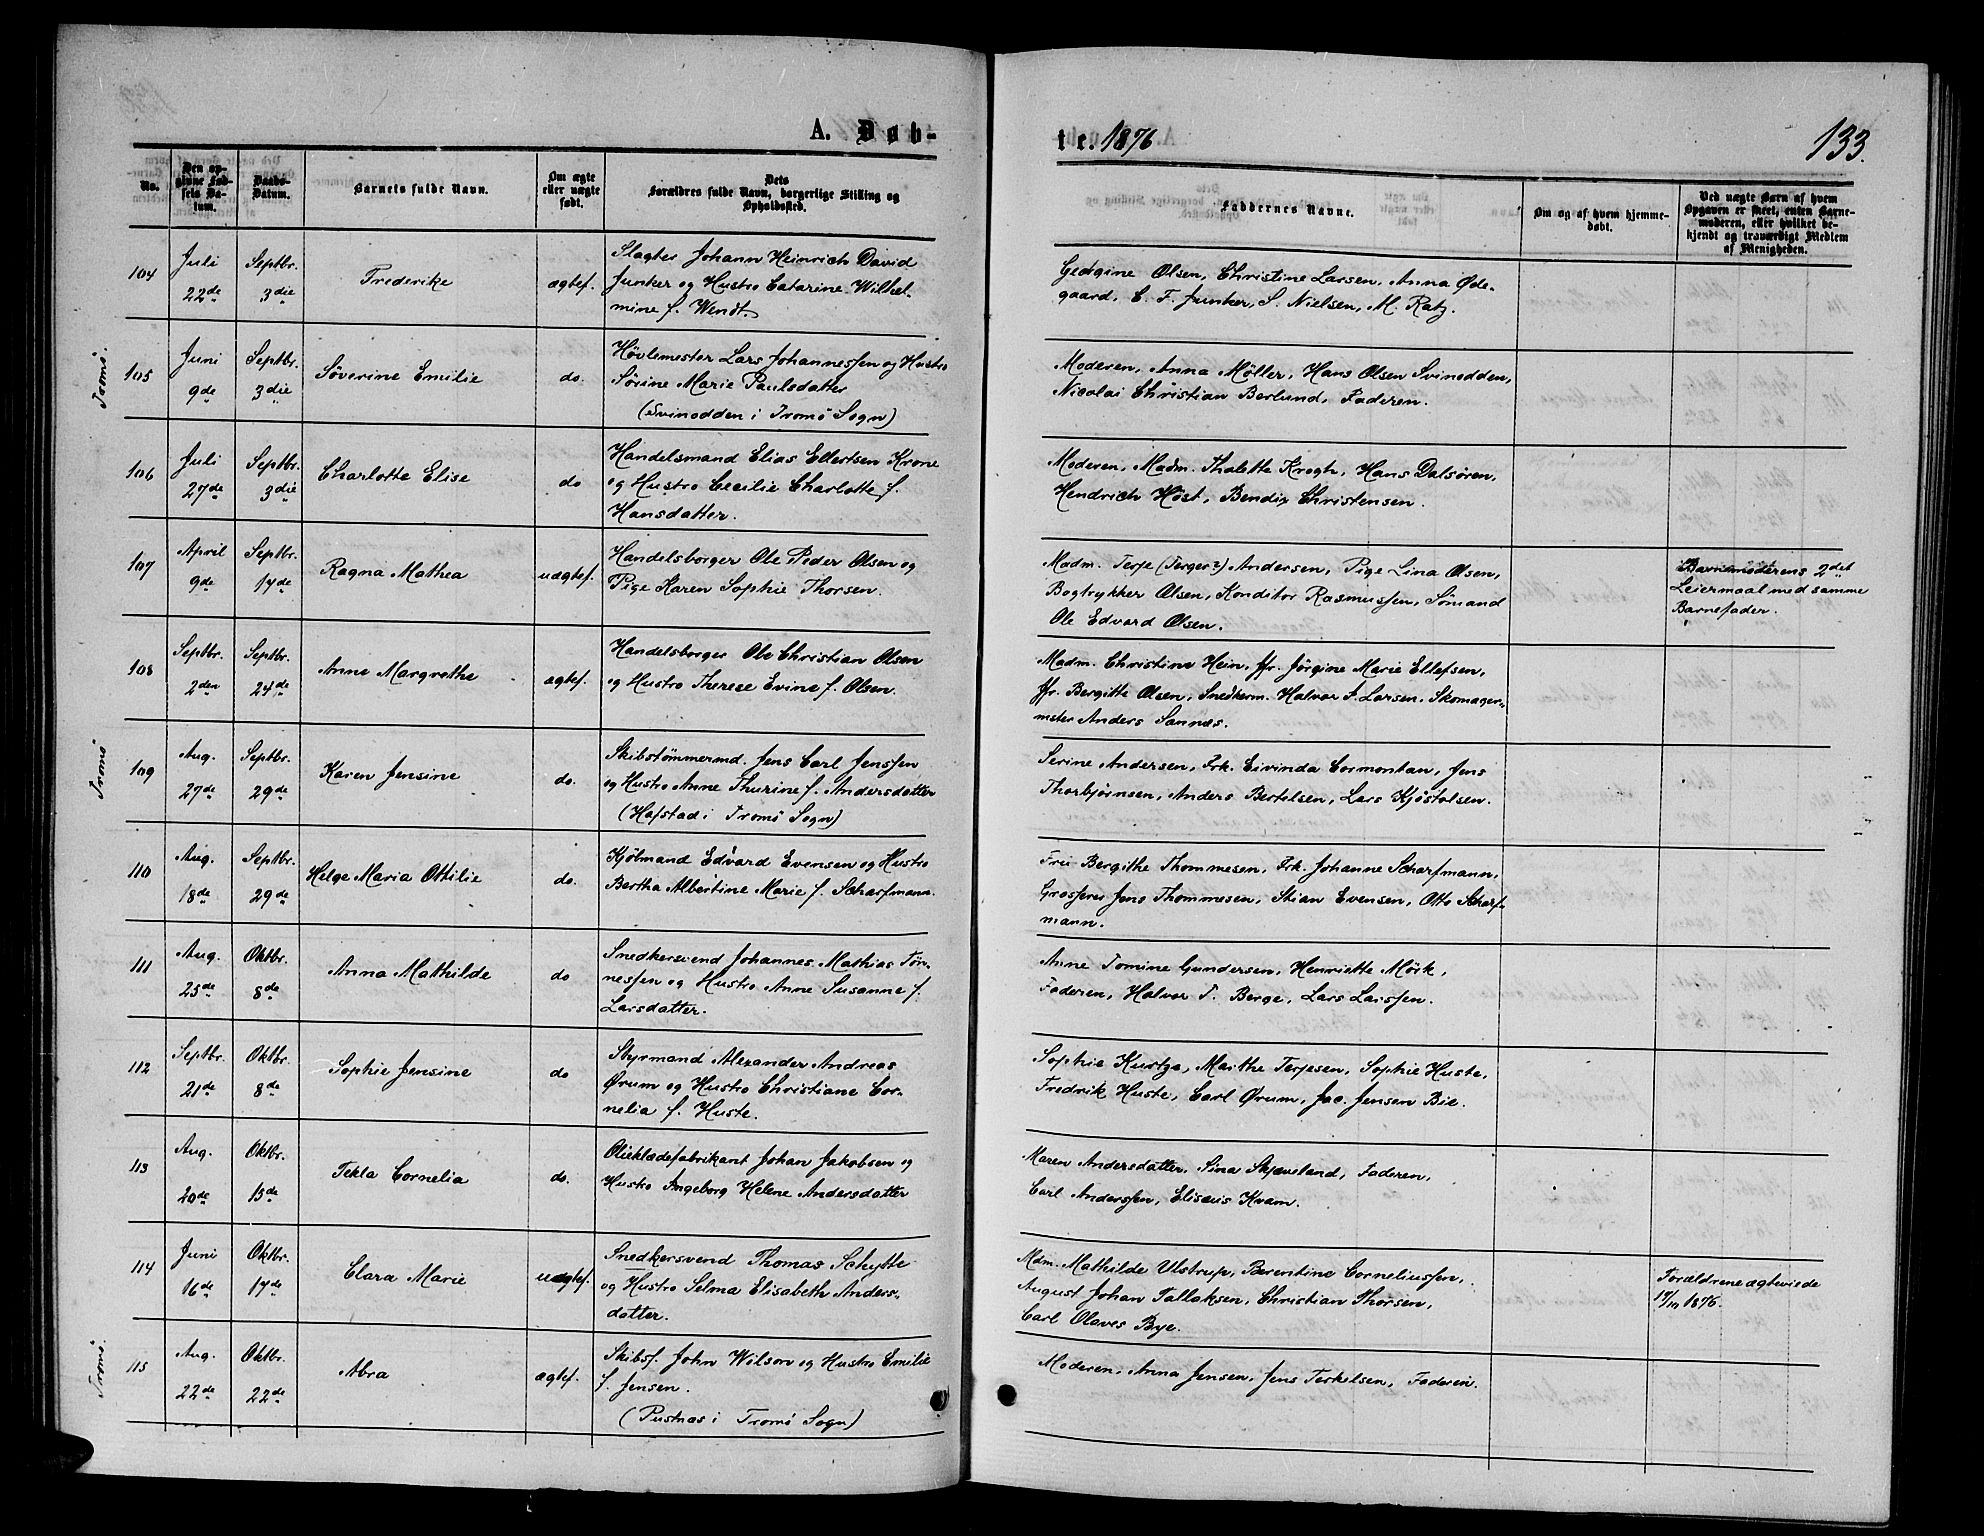 A. Døb-
te. 1876
133.
No.
Den op-
givne Fød-
sels Da-
tum.
Daabs-
Datum.
Barnets fulde Navn.
Om ægte
eller uægte
født.
Dets
Forældres fulde Navn, borgerlige Stilling og
Opholdssted.
Faddernes Navne.
Om og af hvem hjemme-
døbt.
Ved uægte Børn af hvem
Opgaven er skeet, enten Barne-
moderen, eller hvilket be-
kjendt og troværdigt Medlem
af Menigheden.
104
Juli
22de
Septbr.
3die
Frederike
ægtef.
Slagter Johann Heinrich David
Junker og Hustro Catarine Wilhel-
mine f. Wendt.
Georgine Olsen, Christine Larsen, Anna Øde-
gaard, C. F. Junker, S. Nielsen, M. Ratz.
Tromö.
105
Juni
9de
Septbr.
3die
Söverine Emilie
do.
Hövlemester Lars Johannessen og Hustro
Sörine Marie Paulsdatter
(Svinodden i Tromö Sogn)
Moderen, Anna Möller, Hans Olsen Svinodden,
Nicolai Christian Berlund, Faderen.
106
Juli
27de
Septbr.
3die
Charlotte Elise
do
Handelsmand Elias Ellertsen Krone
og Hustro Cecilie Charlotte f.
Hansdatter.
Moderen, Madm. Thalette Krogh, Hans Dalsören,
Hendrich Höst, Bendix Christensen.
107
April
9de
Septbr.
17de
Ragna Mathea
uægtef.
Handelsborger Ole Peder Olsen og
Pige Karen Sophie Thorsen.
Madm. Terje (Terger?) Andersen, Pige Lina Olsen,
Bogtrykker Olsen, Konditor Rasmussen, Sömand
Ole Edvard Olsen.
Barnemoderens 2det
Leiermaal med samme
Barnefader.
108
Septbr.
2den
Septbr.
24de
Anne Margrethe
ægtef.
Handelsborger Ole Christian Olsen
og Hustro Therese Evine f. Olsen.
Madm. Christine Hein, Jfr. Jörgine Marie Ellefsen,
Jfr. Bergitte Olsen, Snedkerm. Halvor P. Larsen, Skomager-
mster Anders Sannæs.
Tromö
109
Aug.
27de
Septbr.
29de
Karen Jensine
do.
Skibstömmermd. Jens Carl Jenssen
og Hustro Anne Thurine f. Andersdatter
(Hafstad i Tromö Sogn)
Serine Andersen, Frk. Eivinda Cormontan, Jens
Thorbjörnsen, Anders Bertelsen, Lars Kjöstolsen.
110
Aug.
18de
Septbr.
29de
Helge Maria Ottilie
do.
Kjöbmand Edvard Evensen og Hustro
Bertha Albertine Marie f. Scharfmann.
Frue Bergithe Thommesen, Frk. Johanne Scharfmann,
Grosserer Jens Thommesen, Stian Evensen, Otto Scharf-
mann.
111
Aug.
25de
Oktbr.
8de
Anna Mathilde
do
Snedkersvend Johannes Mathias Tön-
nessen og Hustro Anne Susanne f.
Larsdatter.
Anne Tomine Gundersen, Henriette Mörk,
Faderen, Halvor T. Berge, Lars Larssen.
112
Septbr.
21de
Oktbr.
8de
Sophie Jensine
do
Styrmand Alexander Andreas
Ørum og Hustro Christiane Cor-
nelia f. Huste.
Sophie Huste, Marthe Terjesen, Sophie Huste,
Fredrik Huste, Carl Ørum, Jac. Jensen Bie.
113
Aug.
20de
Oktbr.
15de
Tekla Cornelia
do.
Olieklædefabrikant Johan Jakobsen og
Hustro Ingeborg Helene Andersdatter
Maren Andersdatter, Sina Skjæveland, Faderen,
Carl Anderssen, Elisæus Kvam.
114
Juni
16de
Oktbr.
17de
Clara Marie
uægtef.
Snedkersvend Thomas Schytte
og Hustro Selma Elisabeth Anders-
datter.
Mdm. Mathilde Ulstrup, Berentine Corneliussen,
August Johan Tallaksen, Christian Thorsen,
Carl Olaves Bye.
Forældrene ægteviede
17/10 1876.
Tromö.
115
Aug.
22de
Oktbr.
22de
Abra
ægtef.
Skibsf. John Wilson og Hustro Emilie
f. Jensen.
(Pusnæs i Tromö Sogn)
Moderen, Anna Jensen, Jens Terkelsen, Faderen.